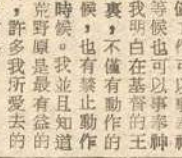 等候也可以事奉神
我明白在基督的王
裏，不僅有動作的
候，也有禁止動作
時候。我並且知道
荒野原是最有益的
，許多我所愛去的